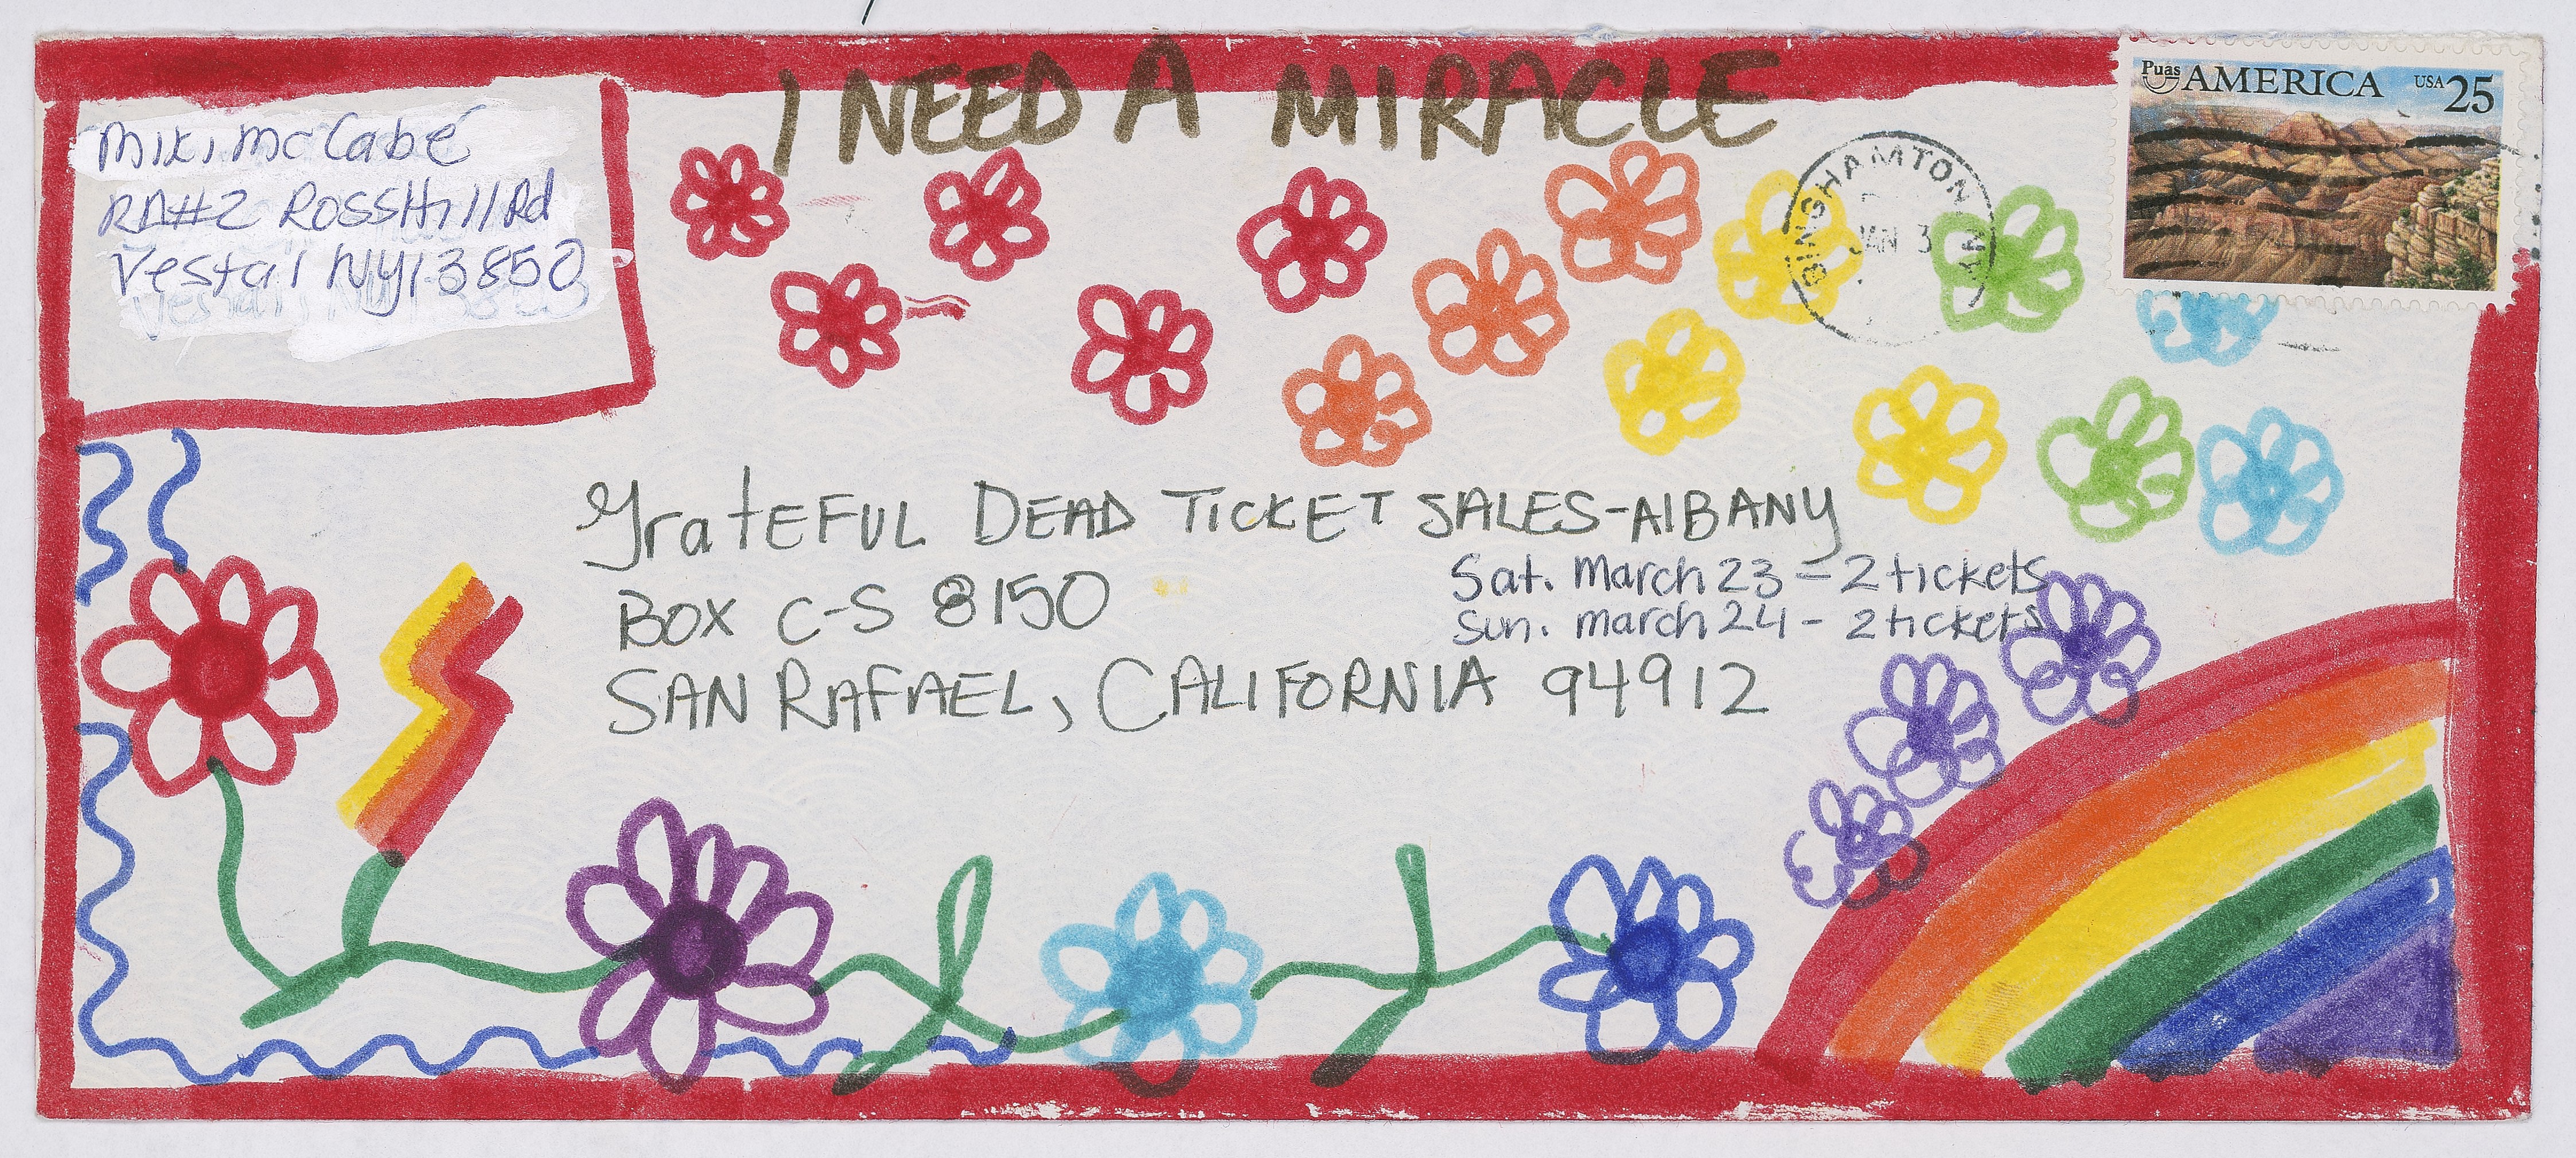 I NEED A MIRACLE
Puas AMERICA USA 25
Miki McCabe
RD#2 Ross Hill Rd
Vestal NY 13850
BINGHAMTON
JAN 3
GrateFUL DEAD TICKET SALES-AlBANY
Sat. March 23 - 2 tickets
Sun. March 24 - 2 tickets
BOX C-S 8150
SAN RAFAEL, CALIFORNIA 94912